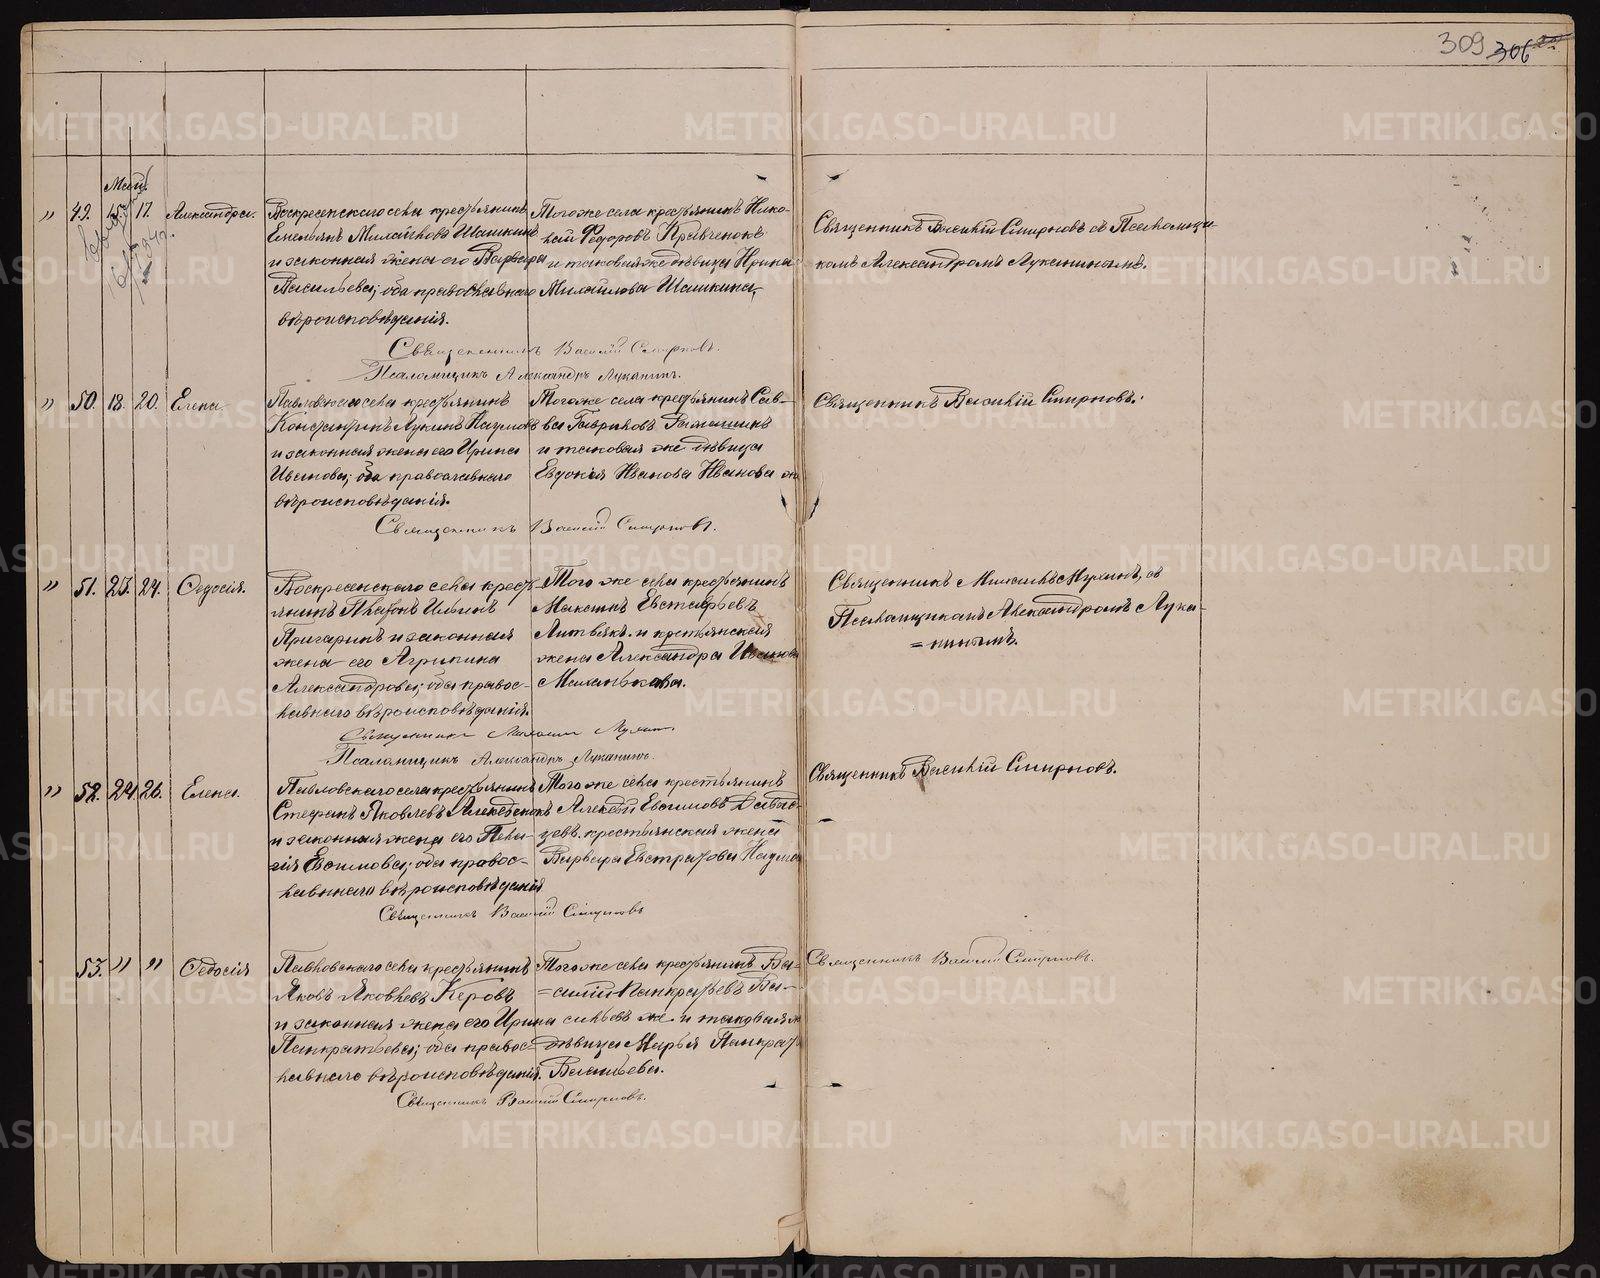 309 306
Май.
" 49. 15. 17. Александра.
Воскресенскаго села крестьянинъ
Емельянъ Михайловъ Шашкинъ
и законная жена его Варвара
Васильева; оба православнаго
вѣроисповѣданія.
Тогоже села крестьянинъ Нико-
лай Федоровъ Кравченокъ
и таковаяже дѣвица Ирина
Михайлова Шашкина,
Священникъ Василій Смирновъ съ Псаломщи
комъ Александромъ Луканинымъ.
Священникъ Василій Смирновъ.
Псаломщикъ Александръ Луканинъ.
" 50. 18. 20. Елена.
Павловскаго села крестьянинъ
Константинъ Лукинъ Наумовъ
и законная жена его Ирина
Иванова; оба православнаго
вѣроисповѣданія.
Тогоже села крестьянинъ Сав-
ва Гавриловъ
и таковая же дѣвица
Евдокія Иванова Иванова же
Священникъ Василій Смирновъ.
Священникъ Василій Смирновъ.
" 51. 23. 24. Ѳедосія.
Воскресенскаго села кресть-
янинъ Платонъ Ильинъ
Пригаринъ и законная
жена его Агрипина
Александрова; оба правос-
лавнаго вѣроисповѣданія.
Того же села крестьянинъ
Максимъ Евстафьевъ
Литвякъ. и крестьянская
жена Александра Иванова
Маханькова.
Священникъ Михаилъ Мухинъ, съ
Псаломщикомъ Александромъ Лука-
=нинымъ.
Священникъ Михаилъ Мухинъ.
Псаломщикъ Александръ Луканинъ.
" 52. 24. 26. Елена.
Павловскаго села крестьянинъ
Стефанъ Яковлевъ
и законная жена его Пела-
гія Евѳимова; оба правос-
лавнаго вѣроисповѣданія
Того же села крестьянинъ
Алексѣй Евѳимовъ
цевъ. крестьянская жена
Варвара Евстратова Наумова
Священникъ Василій Смирновъ.
Священникъ Василій Смирновъ
53. " " Ѳедосія
Павловскаго села крестьянинъ
Яковъ Яковлевъ Керовъ
и законная жена его Ирина
Панкратьева; оба правос-
лавнаго вѣроисповѣданія.
Тогоже села крестьянинъ Ва-
=силій Панкратьевъ Ва-
сильевъ же. и таковая же
дѣвица Марья Панкрать
Васильева.
Священникъ Василій Смирновъ.
Священникъ Василій Смирновъ.
METRIKI.GASO-URAL.RU